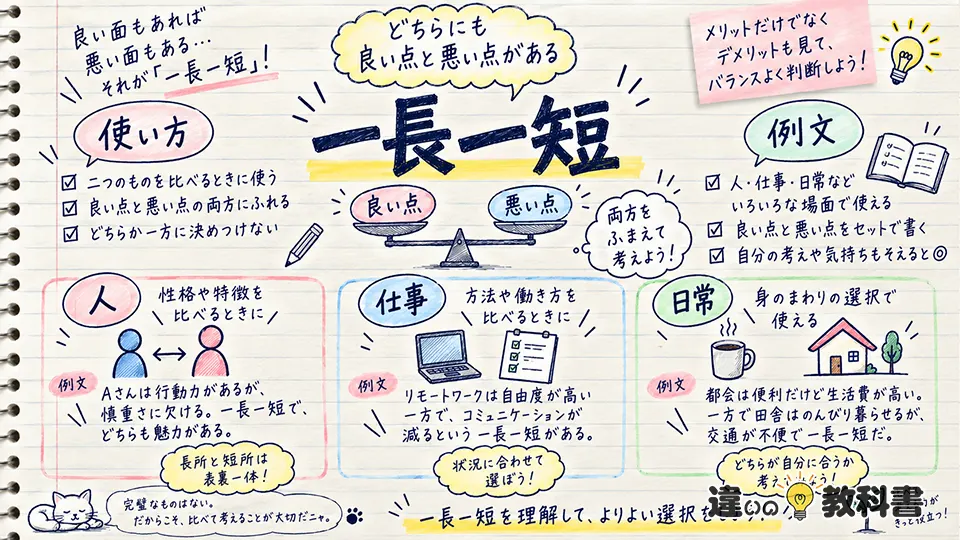 良い面もあれば
悪い面もある…
それが「一長一短」！
どちらにも
良い点と悪い点がある
メリットだけでなく
デメリットも見て、
バランスよく判断しよう！
一長一短
使い方
二つのものを比べるときに使う
良い点と悪い点の両方にふれる
どちらか一方に決めつけない
良い点
悪い点
両方を
ふまえて
考えよう！
例文
人・仕事・日常など
いろいろな場面で使える
良い点と悪い点をセットで書く
自分の考えや気持ちもそえると◎
人
性格や特徴を
比べるときに
例文
Aさんは行動力があるが、
慎重さに欠ける。一長一短で、
どちらも魅力がある。
長所と短所は
表裏一体！
仕事
方法や働き方を
比べるときに
例文
リモートワークは自由度が高い
一方で、コミュニケーションが
減るという一長一短がある。
状況に合わせて
選ぼう！
日常
身のまわりの選択で
使える
例文
都会は便利だけど生活費が高い。
一方で田舎はのんびり暮らせるが、
交通が不便で一長一短だ。
どちらが自分に合うか
考え
う！
完璧なものはない。
だからこそ、比べて考えることが大切だニャ。
一長一短を理解して、よりよい選択を
違いの教科書
が
きっと役立つ！